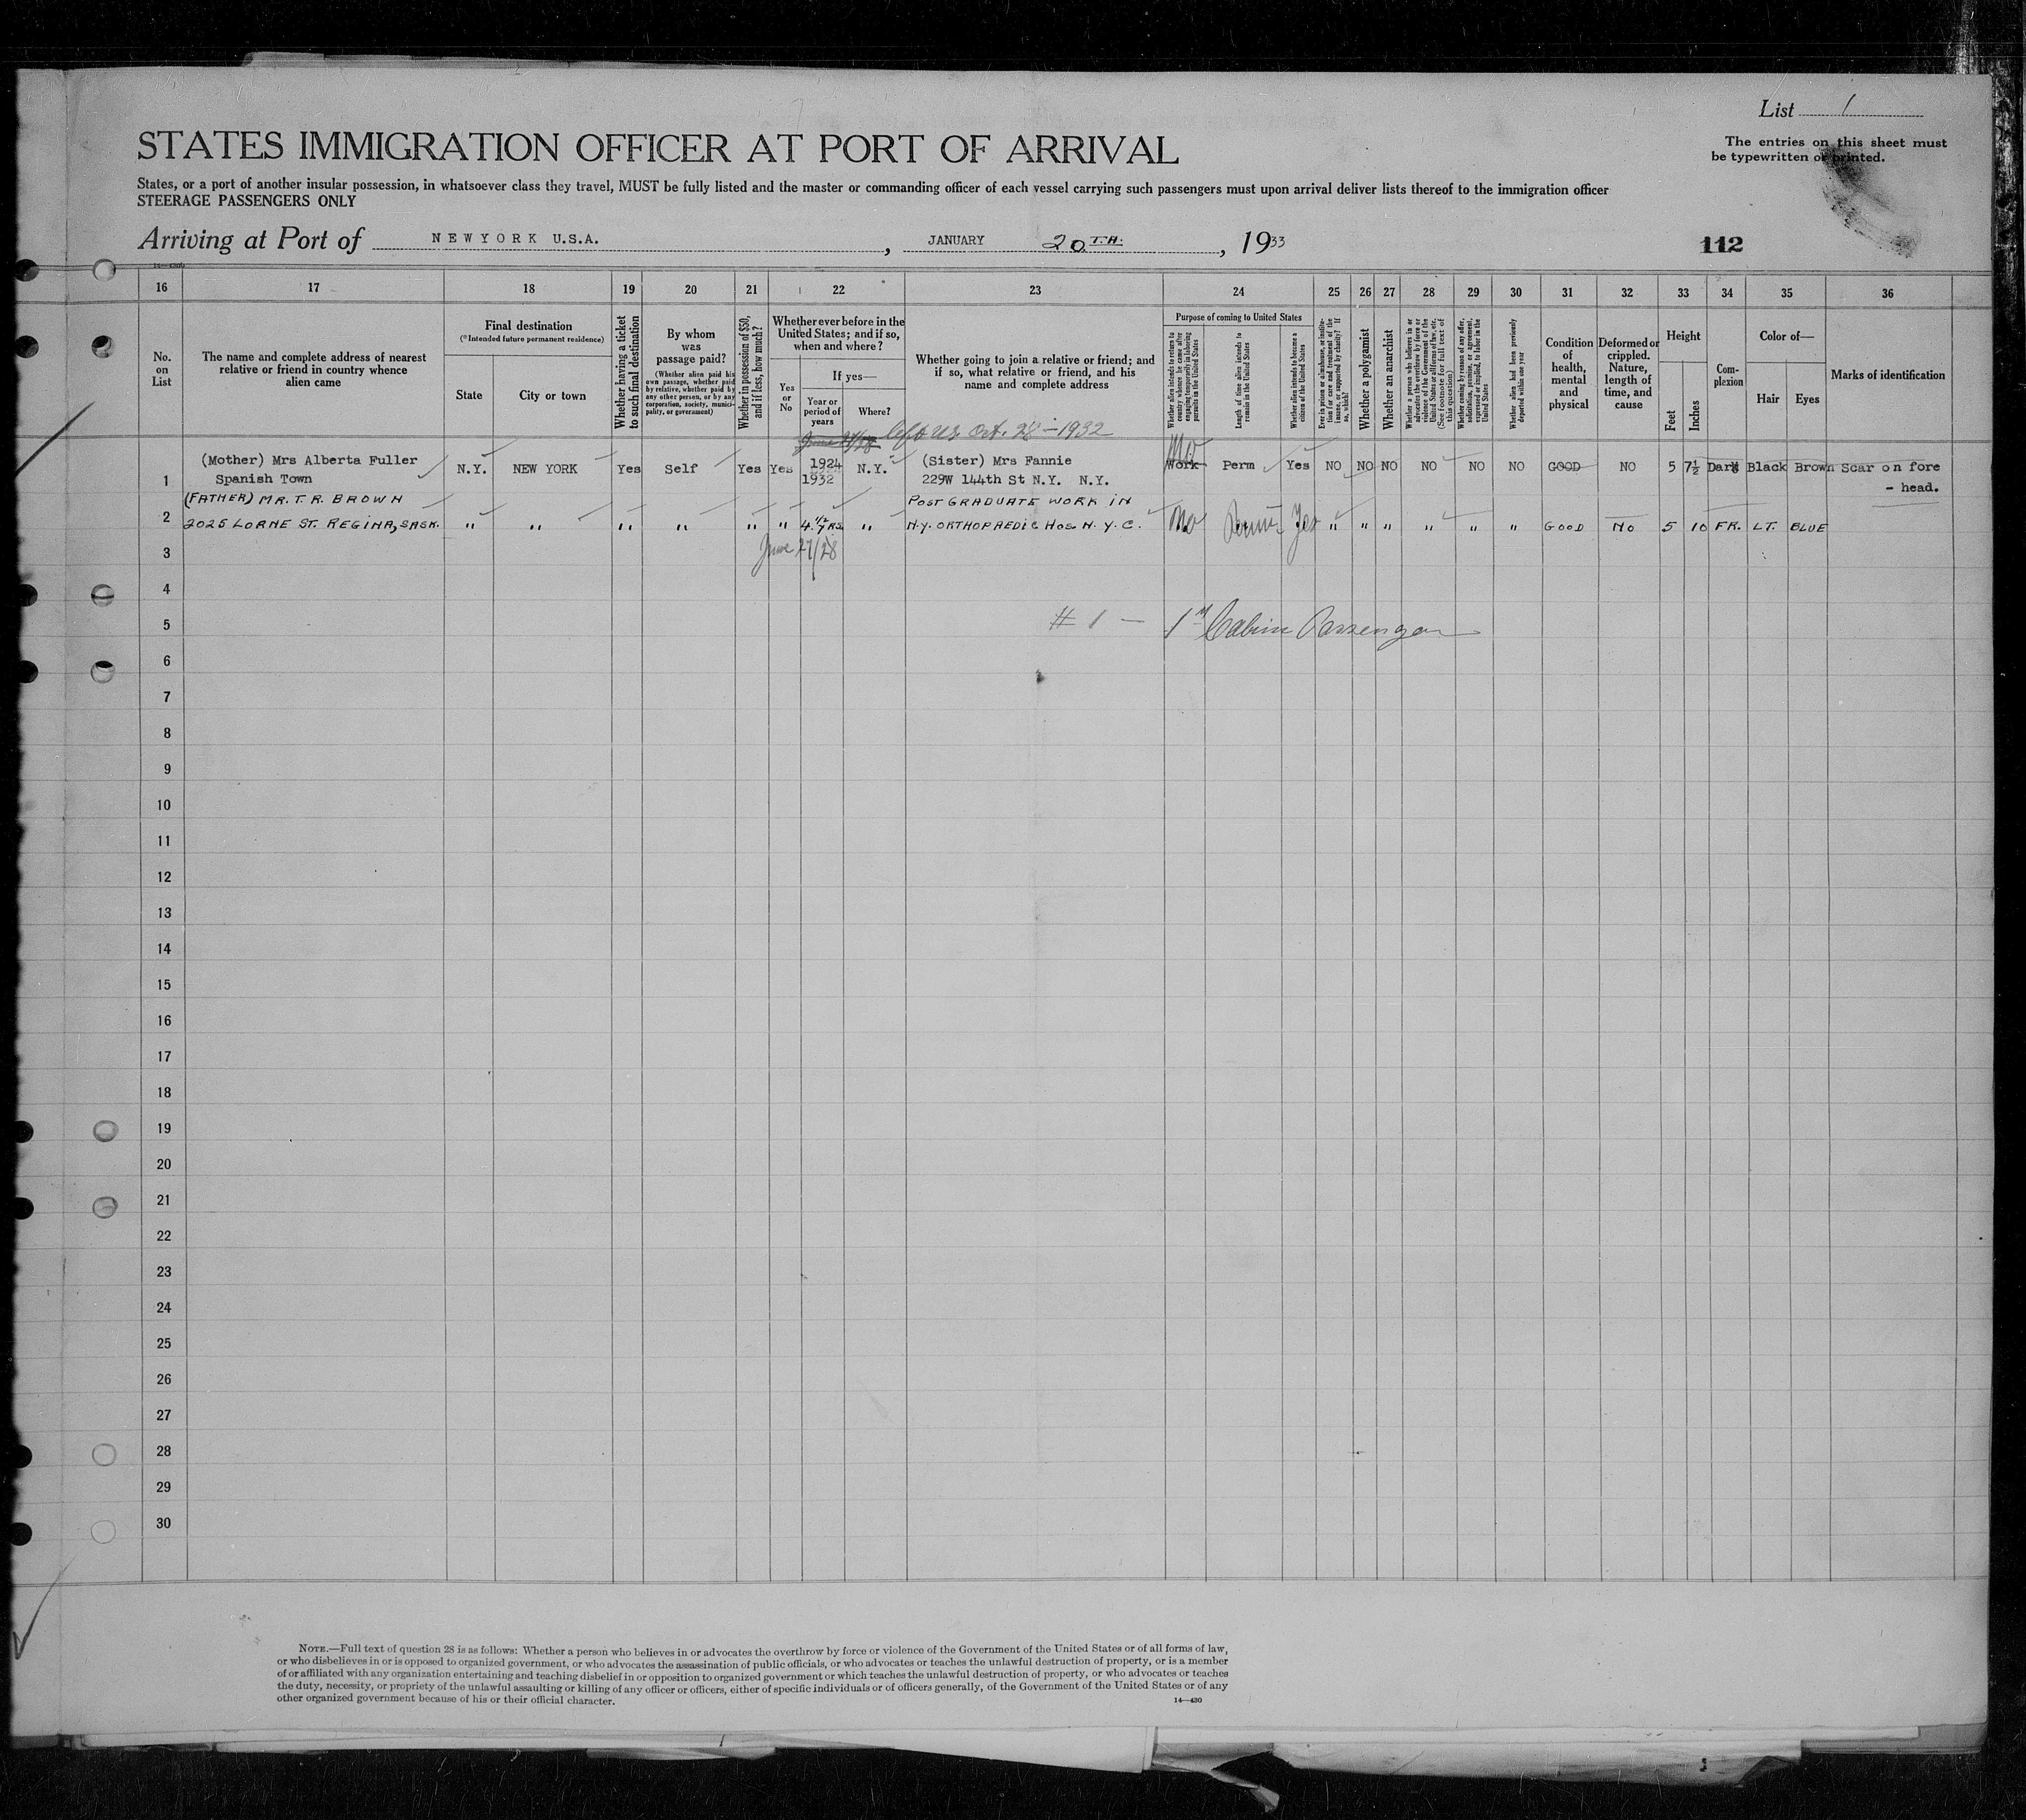 List 1
The entries on this sheet must
be typewritten or printed.
STATES IMMIGRATION OFFICER AT PORT OF ARRIVAL
States, or a port of another insular possession, in whatsoever class they travel, MUST be fully listed and the master or commanding officer of each vessel carrying such passengers must upon arrival deliver lists thereof to the immigration officer
STEERAGE PASSENGERS ONLY
Arriving at Port of NEWYORK U.S.A. , JANUARY 20TH. , 1933
112
16 17 18 19 20 21 22 23 24 25 26 27 28 29 30 31 32 33 34 35 36
No. on List
The name and complete address of nearest relative or friend in country whence alien came
Final destination
(*Intended future permanent residence)
State
City or town
Whether having a ticket to such final destination
By whom was passage paid?
(Whether alien paid his own passage, whether paid by relative, whether paid by any other person, or by any corporation, society, municipality, or government)
Whether in possession of $50, and if less, how much?
Whether ever before in the United States; and if so, when and where?
Yes or No
If yes—
Year or period of years
Where?
Whether going to join a relative or friend; and if so, what relative or friend, and his name and complete address
Purpose of coming to United States
Whether alien intends to return to country whence he came after engaging temporarily in laboring pursuits in the United States
Length of time alien intends to remain in the United States
Whether alien intends to become a citizen of the United States
Ever in prison or almshouse, or institution for care and treatment of the insane, or supported by charity? If so, which?
Whether a polygamist
Whether an anarchist
Whether a person who believes in or advocates the overthrow by force or violence of the Government of the United States or all forms of law, etc. (See footnote for full text of this question)
Whether coming by reason of any offer, solicitation, promise, or agreement, expressed or implied, to labor in the United States
Whether alien had been previously deported within one year
Condition of health, mental and physical
Deformed or crippled. Nature, length of time, and cause
Height
Feet
Inches
Complexion
Color of—
Hair
Eyes
Marks of identification
June 27/28 left US Oct. 28–1932
(Mother) Mrs Alberta Fuller 1924 (Sister) Mrs Fannie No
1 Spanish Town N.Y. NEW YORK Yes Self Yes Yes 1932 N.Y. 229W 144th St N.Y. N.Y. Work Perm Yes NO NO NO NO NO NO GOOD NO 5 7½ Dark Black Brown Scar on fore
- head.
(FATHER) MR. T. R. BROWN POST GRADUATE WORK IN
2 2025 LORNE ST. REGINA, SASK. " " " " " " 4½ YRS. " N.Y. ORTHOPAEDIC HOS. N.Y.C. No Perm Yes " " " " " " GOOD NO 5 10 FR. LT. BLUE
3 June 27/28
4
5 # 1 — 1st Cabin Passenger
6
7
8
9
10
11
12
13
14
15
16
17
18
19
20
21
22
23
24
25
26
27
28
29
30
NOTE.—Full text of question 28 is as follows: Whether a person who believes in or advocates the overthrow by force or violence of the Government of the United States or of all forms of law,
or who disbelieves in or is opposed to organized government, or who advocates the assassination of public officials, or who advocates or teaches the unlawful destruction of property, or is a member
of or affiliated with any organization entertaining and teaching disbelief in or opposition to organized government or which teaches the unlawful destruction of property, or who advocates or teaches
the duty, necessity, or propriety of the unlawful assaulting or killing of any officer or officers, either of specific individuals or of officers generally, of the Government of the United States or of any
other organized government because of his or their official character.
14—430